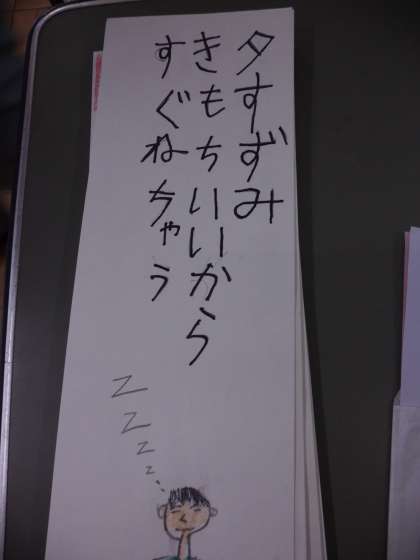 夕すずみ
きもちいいから
すぐねちゃう
Z
Z
Z
Z